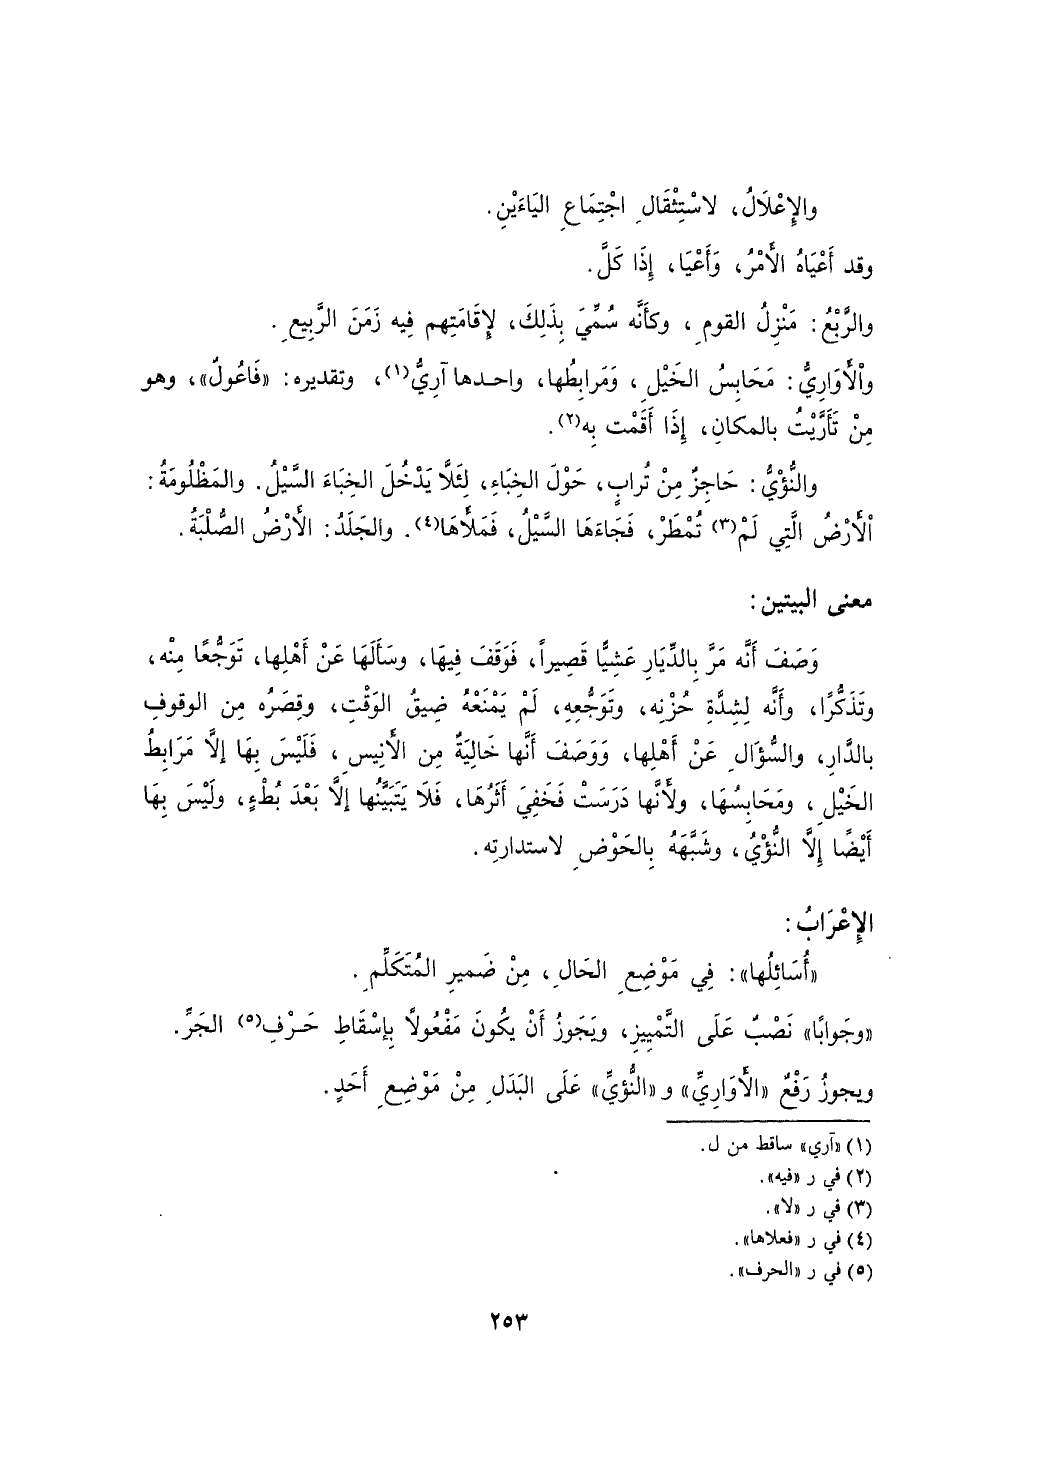 والإِعْلَالُ، لاسْتِثْقَالِ اجْتِمَاعِ اليَاءَيْنِ.
وقد أَعْيَاهُ الأَمْرُ، وَأَعْيَا، إِذَا كَلَّ.
والرَّبْعُ: مَنْزِلُ القومِ، وكأَنَّه سُمِّيَ بِذَلِكَ، لِإقَامَتِهم فِيه زَمَنَ الرَّبِيعِ.
واْلأَوَارِيُّ: مَحَابِسُ الخَيْلِ، وَمَرابِطُها، واحدها آرِيُّ(١)، وتقديره: «فَاعُولٌ»، وهو
مِنْ تَأَرَّيْتُ بالمكانِ، إِذَا أَقَمْت بِه(٢).
والنُّؤْيُّ: حَاجِزٌ مِنْ تُرابٍ، حَوْلَ الخِبَاءِ، لِئَلَّا يَدْخُلَ الخِبَاءَ السَّيْلُ. والمَظْلُومَةُ:
اْلأَرْضُ الَّتِي لَمْ(٣) تُمْطَرْ، فَجَاءَهَا السَّيْلُ، فَمَلأَهَا(٤). والجَلَدُ: الأَرْضُ الصُّلْبَةُ.
معنى البيتين:
وَصَفَ أَنَّه مَرَّ بِالدِّيَارِ عَشِيًّا قَصِيراً، فَوَقَفَ فِيهَا، وسَأَلَهَا عَنْ أَهْلِها، تَوَجُّعًا مِنْه،
وتَذَكُّرًا، وأَنَّه لِشِدَّةِ حُزْنِه، وتَوَجُّعِهِ، لَمْ يَمْنَعْهُ ضِيقُ الوَقْتِ، وقِصَرُه مِن الوقوفِ
بالدَّارِ، والسُّؤَالِ عَنْ أَهْلِها، وَوَصَفَ أَنَّها خَالِيَةٌ مِن الأَنِيسِ، فَلَيْسَ بِهَا إلَّا مَرَابِطُ
الخَيْلِ، ومَحَابِسُهَا، ولأَنَّها دَرَسَتْ فَخَفِيَ أَثَرُهَا، فَلَا يَتَبَيَّنُها إلَّا بَعْدَ بُطْءٍ، ولَيْسَ بِهَا
أَيْضًا إِلَّا النُّؤْيُ، وشَبَّهَهُ بِالحَوْضِ لاستدارتِه.
الإِعْرَابُ:
«أُسَائِلُها»: فِي مَوْضِعِ الحَالِ، مِنْ ضَميرِ المُتَكَلِّمِ.
«وجَوابًا» نَصْبٌ عَلَى التَّمْيِيزِ، ويَجَوزُ أَنْ يكُونَ مَفْعُولاً بِإسْقَاطِ حَرْفِ(٥) الجَرِّ.
ويجوزُ رَفْعٌ «الأَوَارِيِّ» و «النُّؤيِّ» عَلَى البَدَلِ مِنْ مَوْضِعِ أَحَدٍ.
(١) «آري» ساقط من ل.
(٢) في ر «فيه».
(٣) في ر «لا».
(٤) في ر «فعلاها».
(٥) في ر «الحرف».
٢٥٣